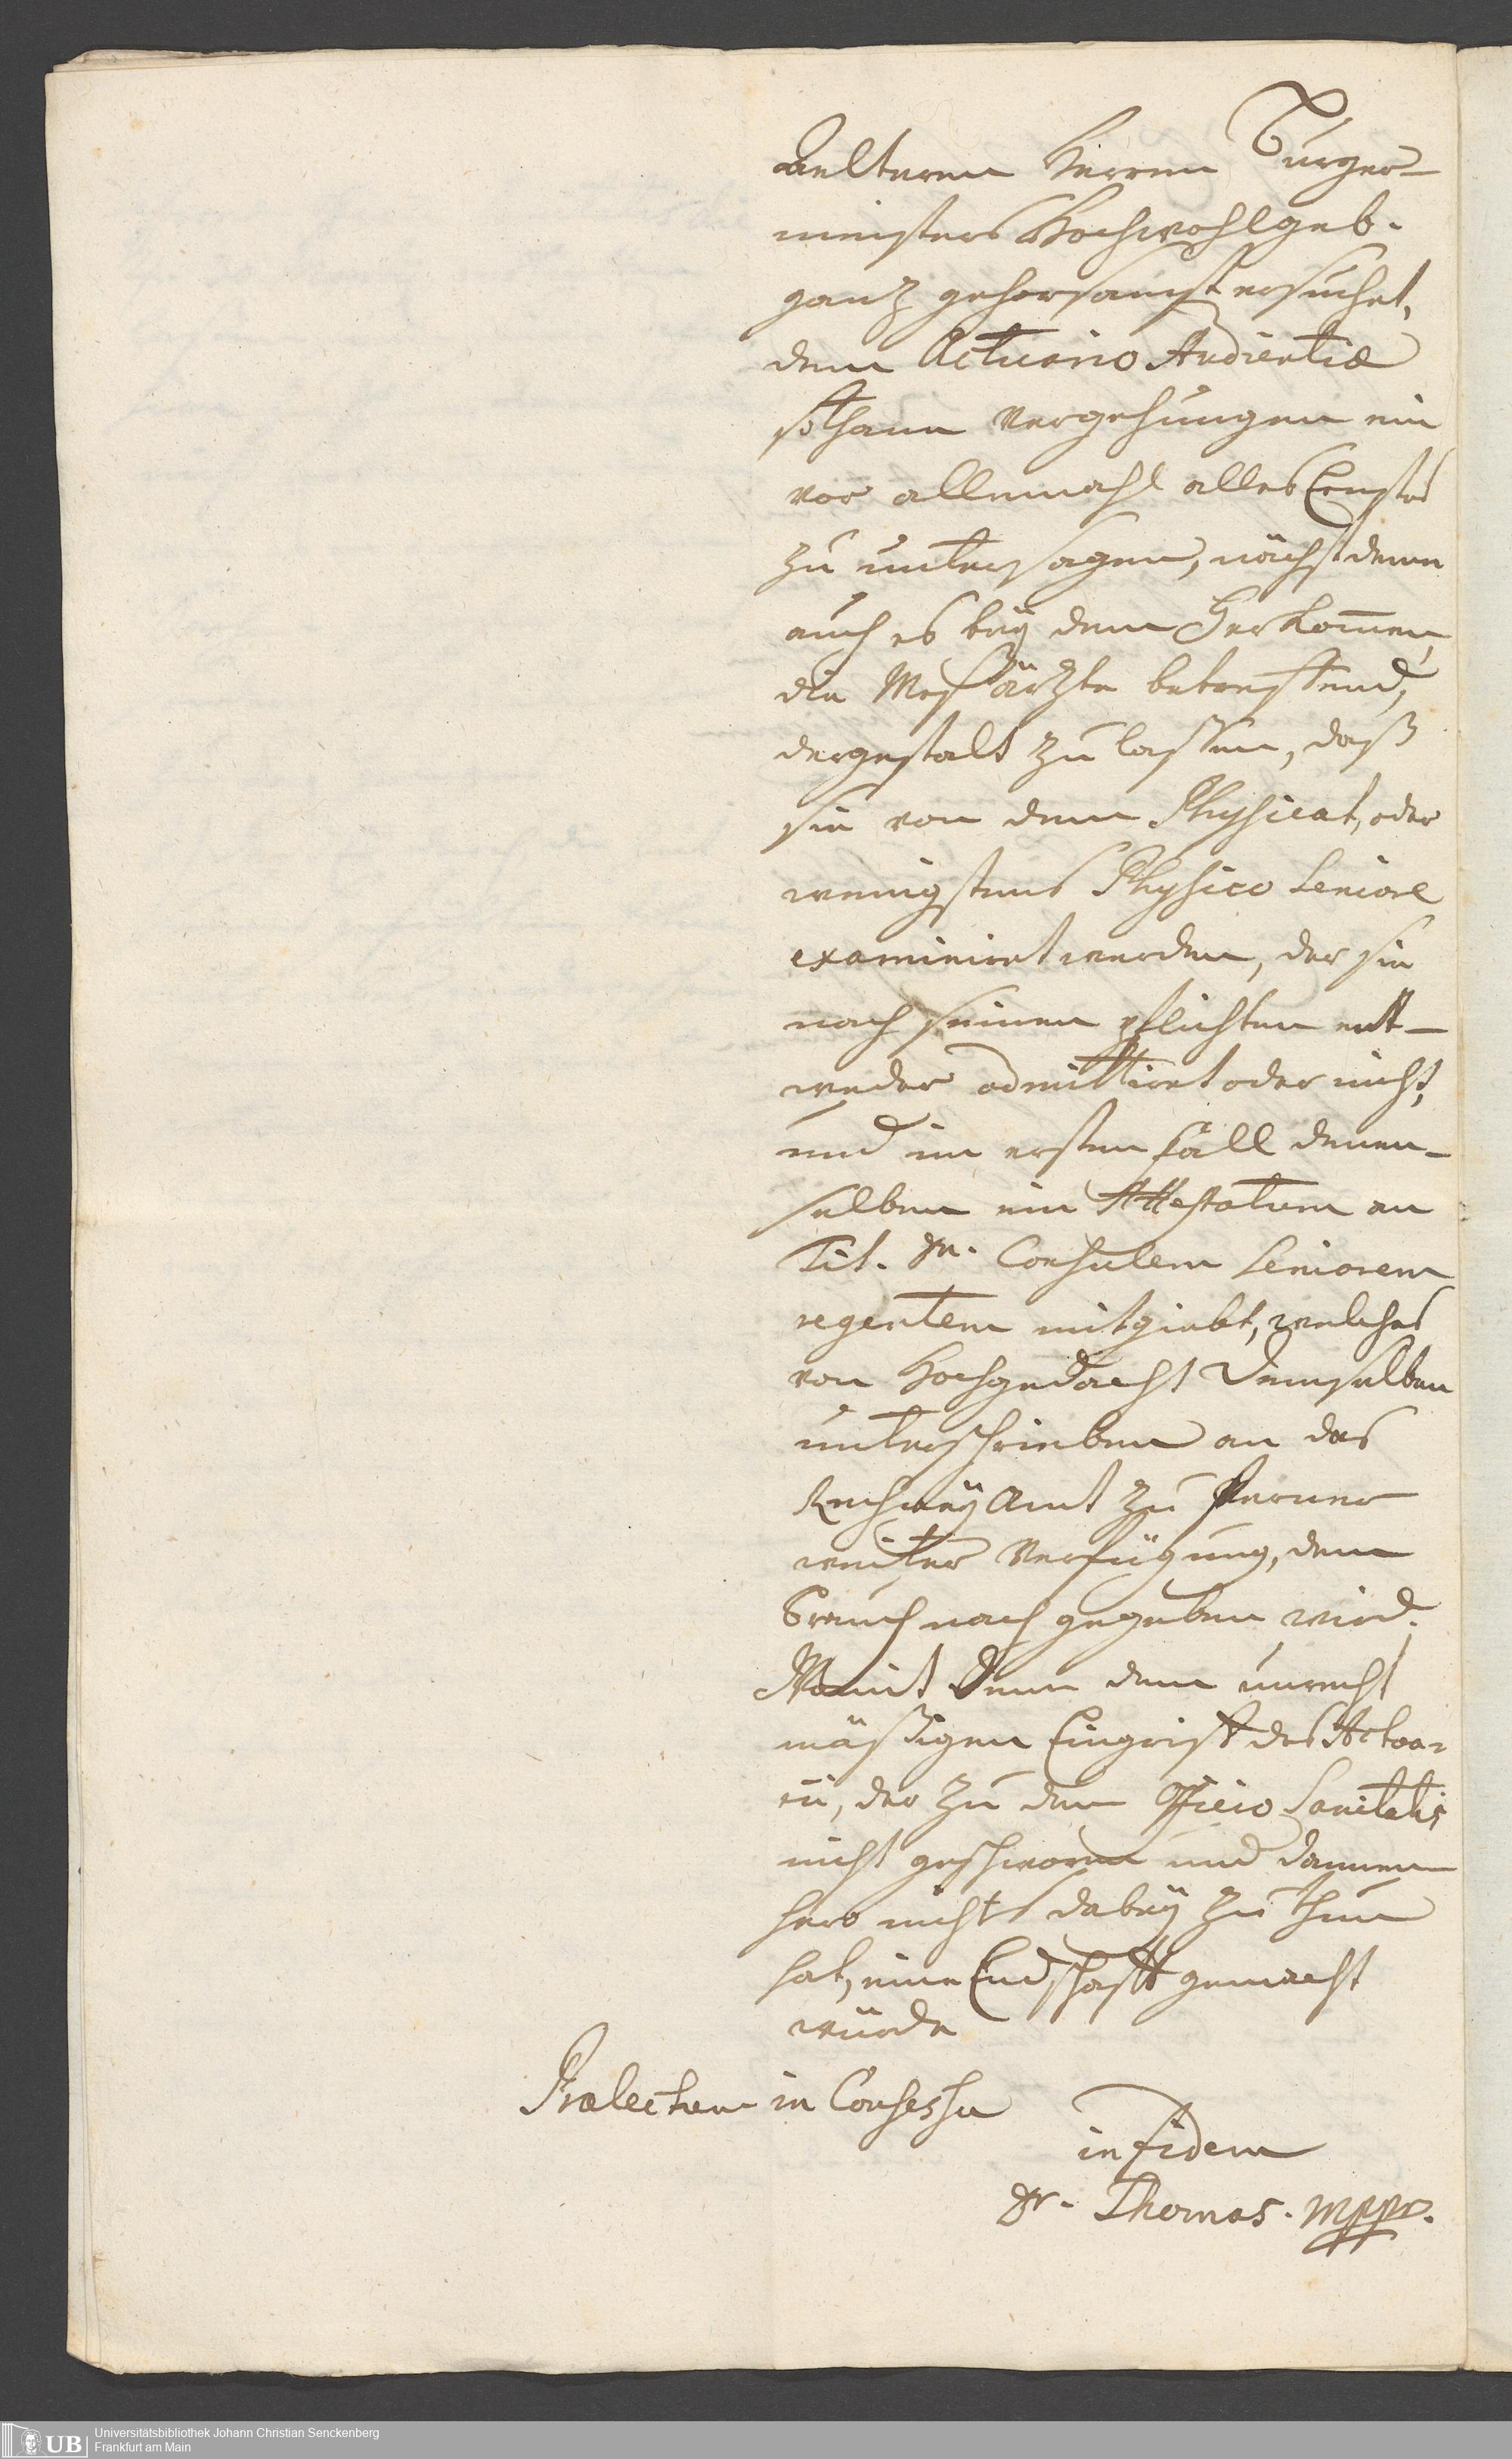 Aelteren Herren Burger-
meisters Hochwohlgeb.
ganz gehorsamst ersuchet,
dem Actuario Audientiæ
sothane Vergehungen ein
vor allemahl alles Ernstes
zu untersagen, nächst deme
auch es beÿ dem Herkom̄en,
die Meßärzte betreffend,
dergestalt zu lassen, daß
sie von dem Physicat, oder
wenigstens Physico Seniore
examiniret werden, der sie
nach seinen pflichten ent-
weder admittiret oder nicht,
und im ersten Fall denen-
selben ein Attestatum an
Tit. Hn. Consulem Seniorem
regentem mitgiebt, welches
von Hochgedacht Demselben
unterschrieben an das
RechneÿAmt zu ferner
weiter Verfügung, dem
Brauch nach gegeben wird.
Womit denn dem unrecht
mäßigen Eingriff des Actua-
rii, der zu dem Officio Sanitatis
nicht geschworen und dannen
hero nichts dabeÿ zu thun
hat, eine Endschafft gemacht
würde
Prælectum in Consessu
in fidem
Dr. Thomas. mppr.
UB
Universitätsbibliothek Johann Christian Senckenberg
Frankfurt am Main